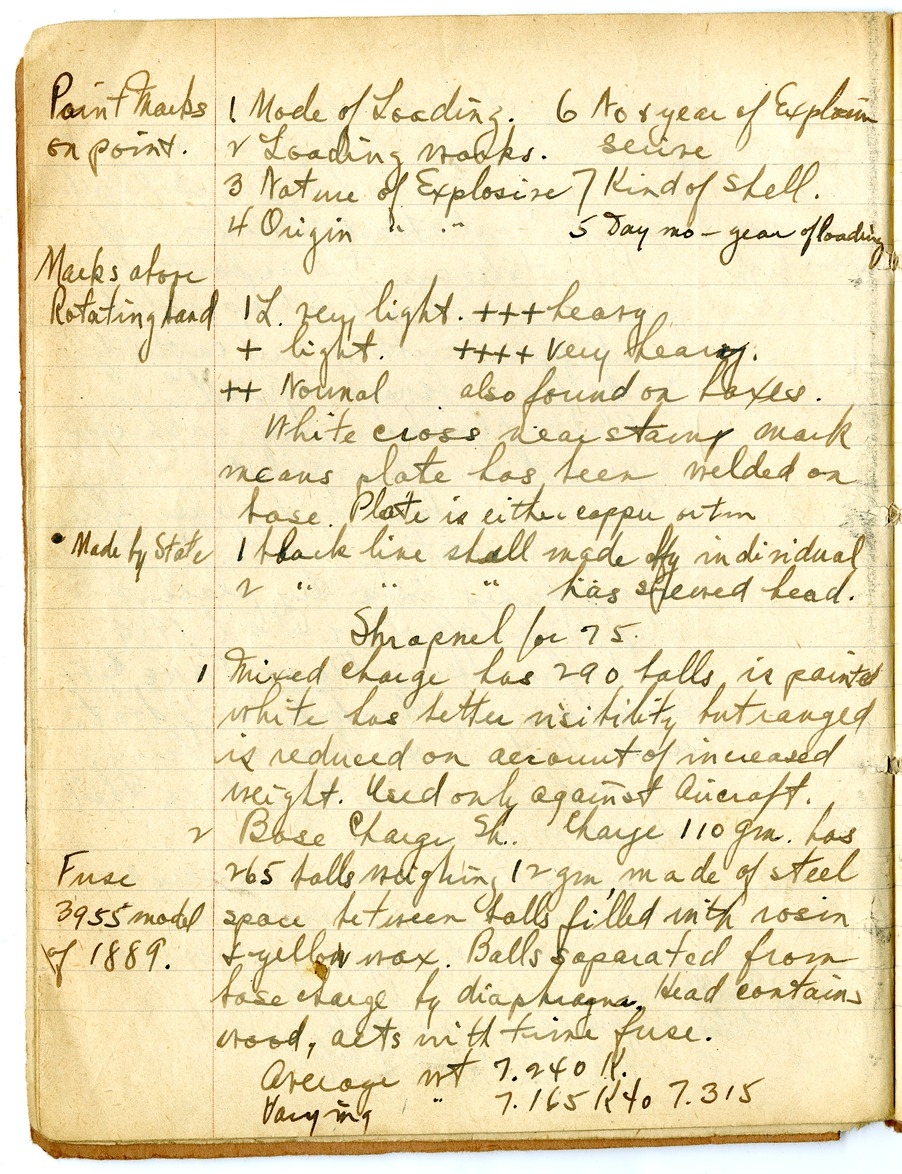 Paint Marks
on point.
1 Mode of Loading. 6 No & year of Explosive
2 Loading works. serire
3 Nature of Explosive 7 Kind of Shell.
4 Origin " " 5 Day mo - year of loading
Marks above
Rotating band
1 L. very light. +++ heavy
+ light. ++++ Very heavy.
++ Normal also found on boxes.
White cross near stamp mark
means plate has been welded on
base. Plate is either copper or tin
Made by State
1 black line shell made by individual
2 " " " has screwed head.
Shrapnel for 75.
1 Mixed Charge has 290 balls, is painted
white has better visibility but ranged
is reduced on account of increased
weight. Used only against Aircraft.
2 Base Charge Sh.. Charge 110 gm. has
Fuse
3955 model
of 1889.
265 balls weighing 12 gm, made of steel
space between balls filled with rosin
& yellow wax. Balls saparated from
base charge by diaphragm. Head contains
wood, acts with time fuse.
Average wt 7.240 K.
Varying " 7.165 K to 7.315